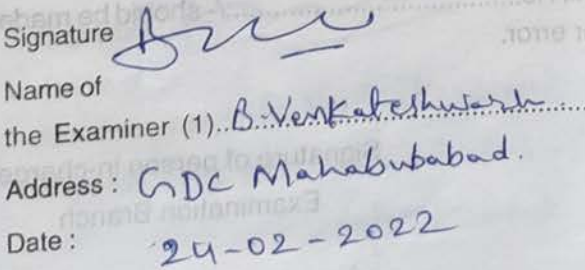 Signature
Name of
the Examiner (1)..B.Venkateshwarlu
Address : GDC Mahabubabad.
Date : 24-02-2022